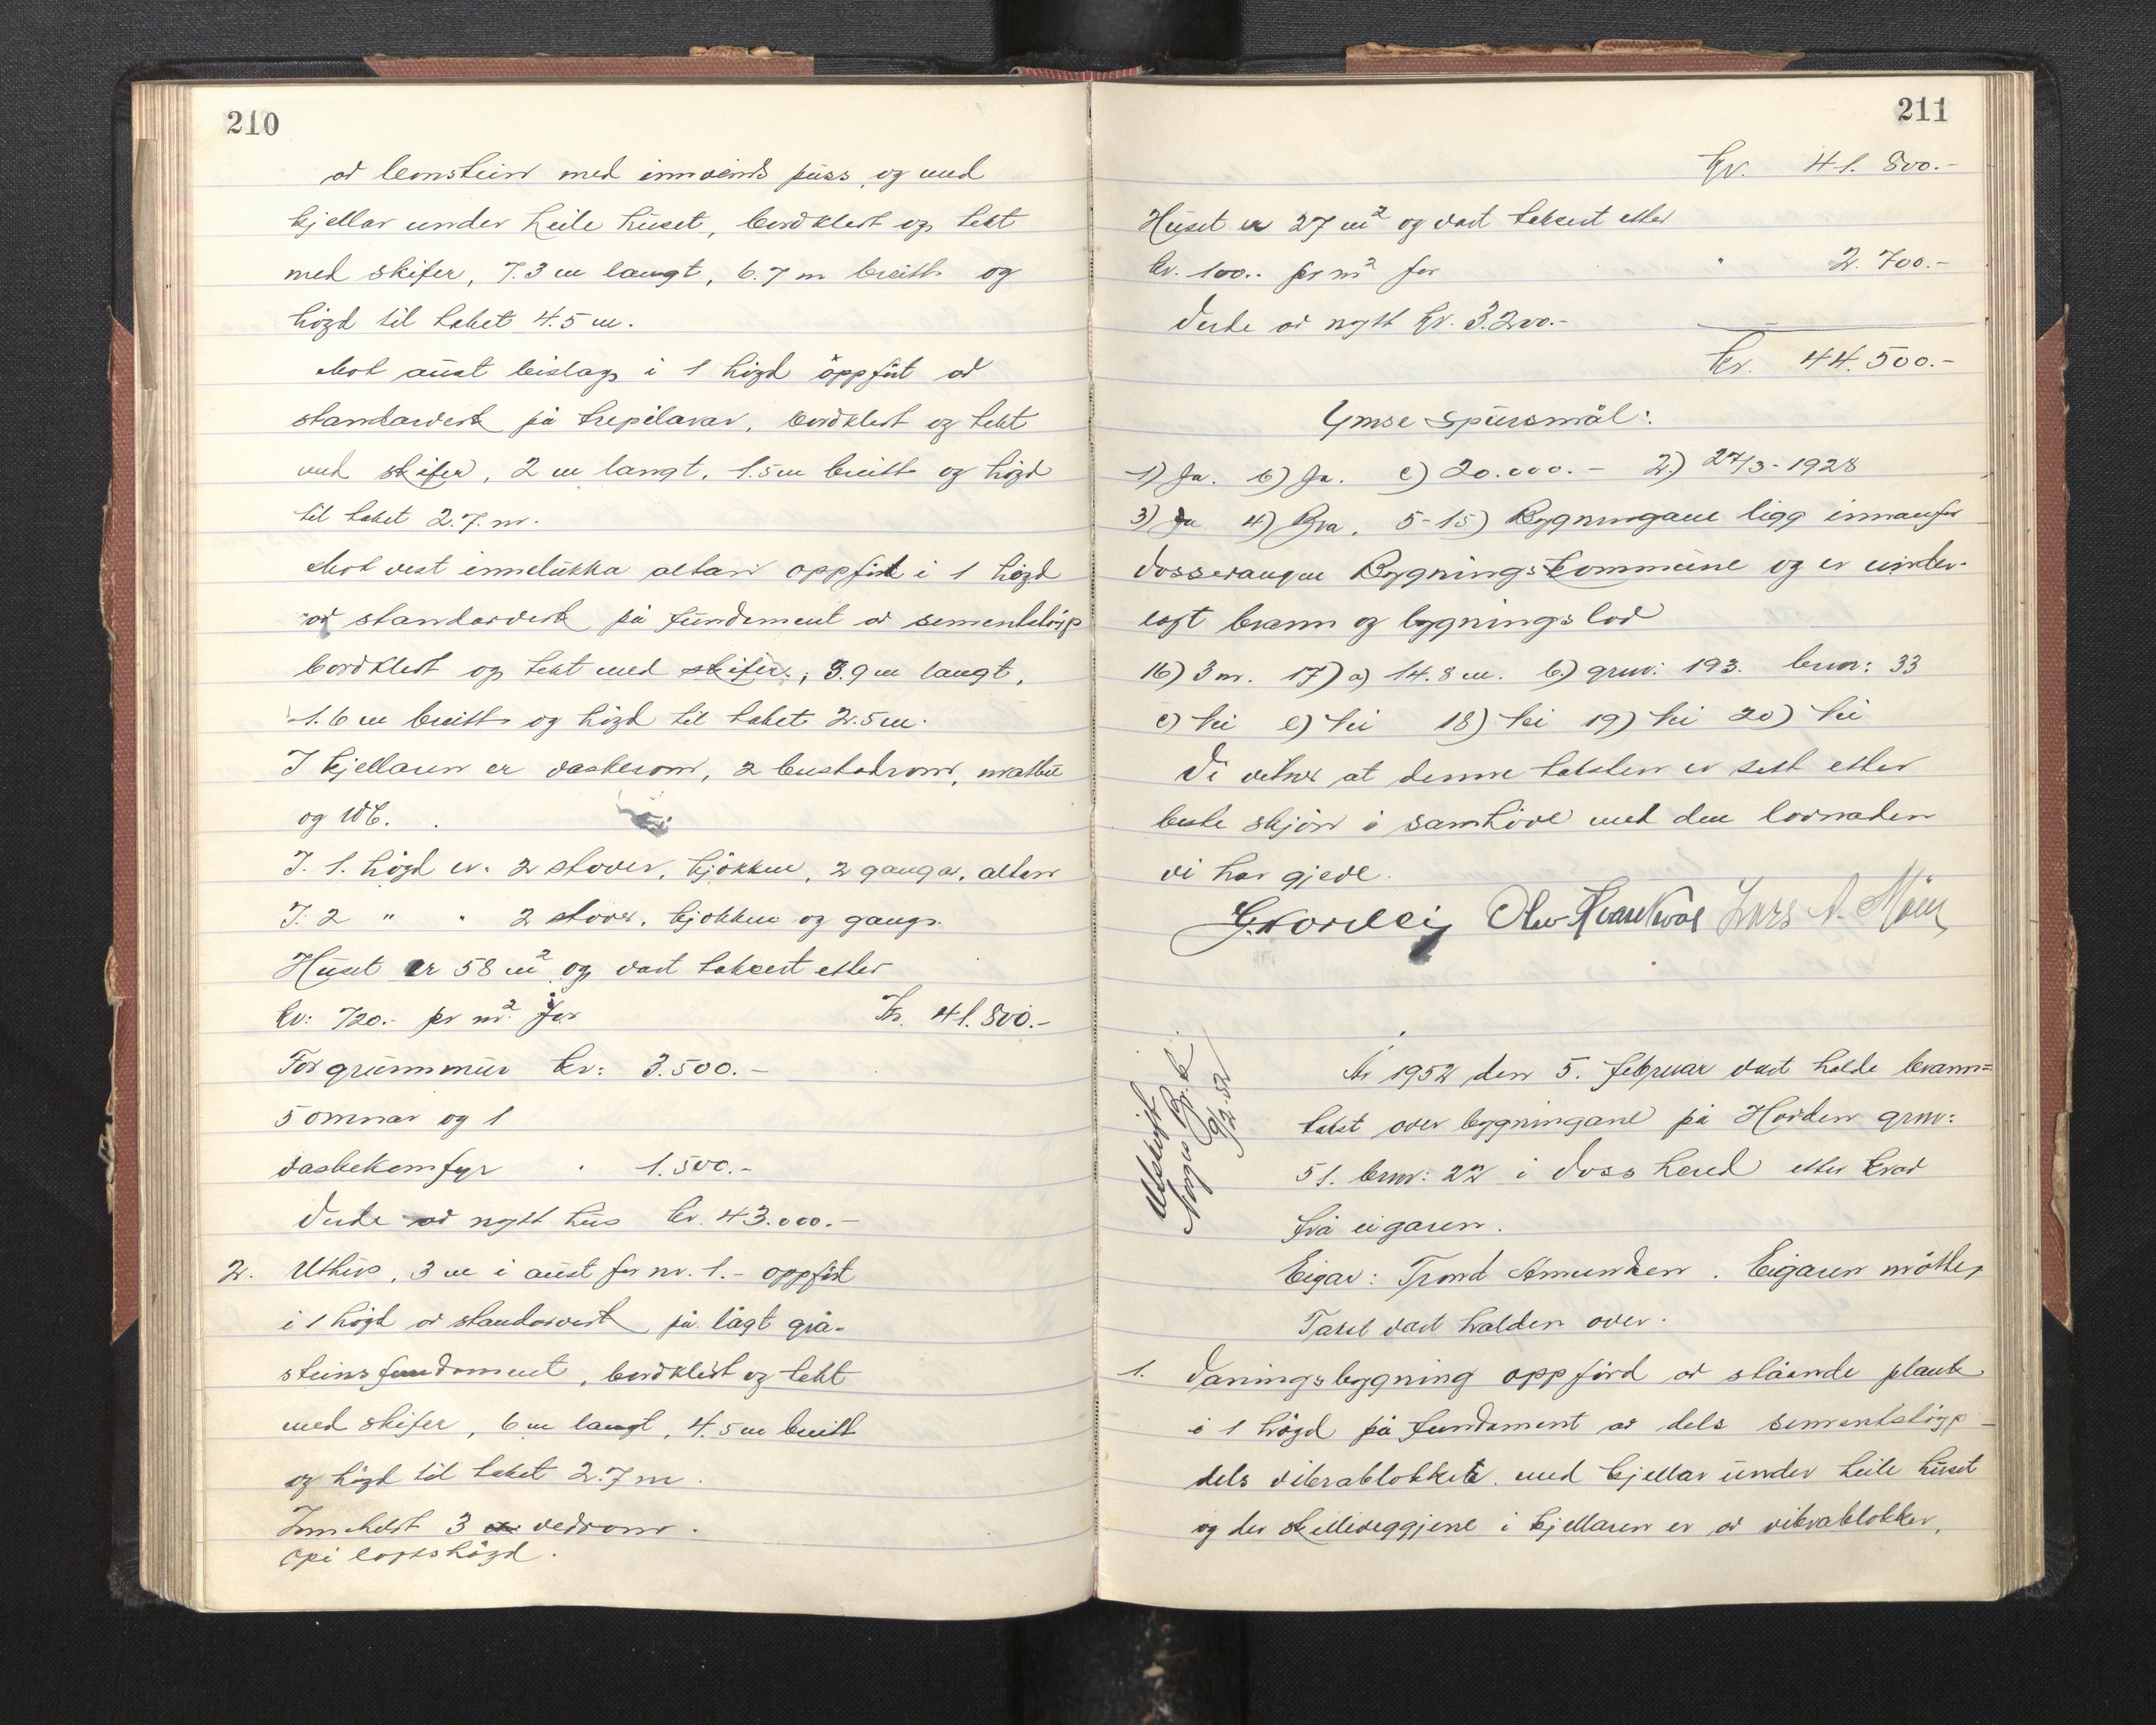 210
av lemstein med innvendig puss, og med
kjellar under heile huset, bordkledt og tekt
med skifer, 7.3 m langt, 6.7 m breitt og
högd til taket 4.5 m.
Mot aust bislag i 1 högd oppfört av
standarverk på trepilarar, bordkledt og tekt
med skifer, 2 m langt, 1.5 m breitt og högd
til taket 2.7. m.
Mot vest innelukka altan oppfört i 1 högd
av standarverk på fundament av sementstöyp
bordkledt og tekt med skifer, 3.9 m langt,
1.6 m breitt og högd til taket 2.5 m.
I kjellaren er vaskerom, 2 bustadrom, matbu
og WC.
I. 1. högd er: 2 stover, kjökken, 2 gangar, altan
I: 2 " " 2 stover, kjökken og gang.
Huset er 58 m2 og vart taksert etter
kr: 720.- pr m2 for Kr. 41.800.-
For grunnmur kr: 3.500.-
5 omnar og 1
vaskekomfyr " 1.500.-
Verde av nytt hus kr. 43.000.-
2. Uthus, 3 m i aust for nr. 1.- oppfört
i 1 högd av standarverk på lågt grå-
steinsfundament, bordkledt og tekt
med skifer, 6 m langt, 4.5 m breitt
og högd til taket 2.7 m.
Inneheldt 3 vedrom.
Opi loftshögd.
211
Kr. 41.800.-
Huset er 27 m2 og vart taksert etter
kr. 100.- pr m2 for " 2.700.-
Verde av nytt kr. 3.200.-
Kr. 44.500.-
Ymse Spursmål:
1) Ja. b) Ja. c) 20.000.- 2) 27/3-1928
3) Ja 4) Bra. 5-15) Bygningane ligg innanfor
Vossevangen Bygningskommune og er under-
lagt brann og bygningslov
16) 3 m. 17) a) 14.8 m. b) grnr: 193. brnr: 33
c) Nei e) Nei 18) Nei 19) Nei 20) Nei
Vi vitnar at denne taksten er sett etter
beste skjön i samhöve med den lovnaden
vi har gjeve.
Olav Kvarekval Lars A. Möen
Utskrift
Norges Br. k.
9/2-52
År 1952 den 5. februar vart halde brann=
takst over bygningane på Horden grnr:
51. brnr: 22 i Voss hered etter krav
frå eigaren.
Eigar: Trond Amundsen. Eigaren mötte,
Takst vart halden over.
1. Våningsbygning oppförd av ståande plank
i 1 högd på fundament av dels sementstöyp
dels vibrablokker. med kjellar under heile huset
og dei skilleveggjene i kjellaren er av vibrablokker,